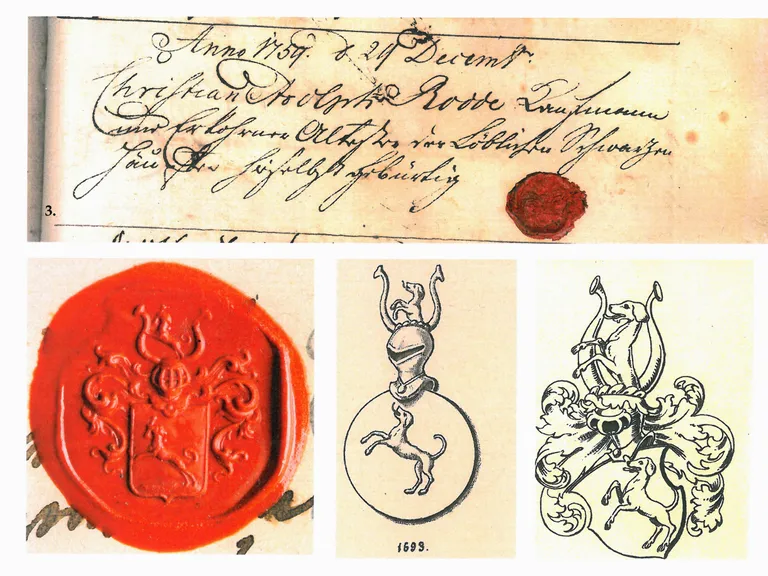 Anno 1759. d. 29 Decembr.
Christian Adolph Rodde Kaufmann
und Erkohrner Altester der Löblichen Schwarzen
Häupter hieselbst gebürtig
3.
1693.